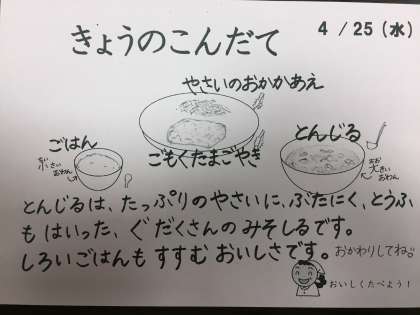 きょうのこんだて
4 / 25 (水)
やさいのおかかあえ
ごはん
ごもくたまごやき
とんじる
とんじるは、たっぷりのやさいに、ぶたにく、とうふ
も はいった、ぐ だくさんの みそしるです。
しろいごはんも すすむ おいしさです。おかわりしてね。
おいしくたべよう！